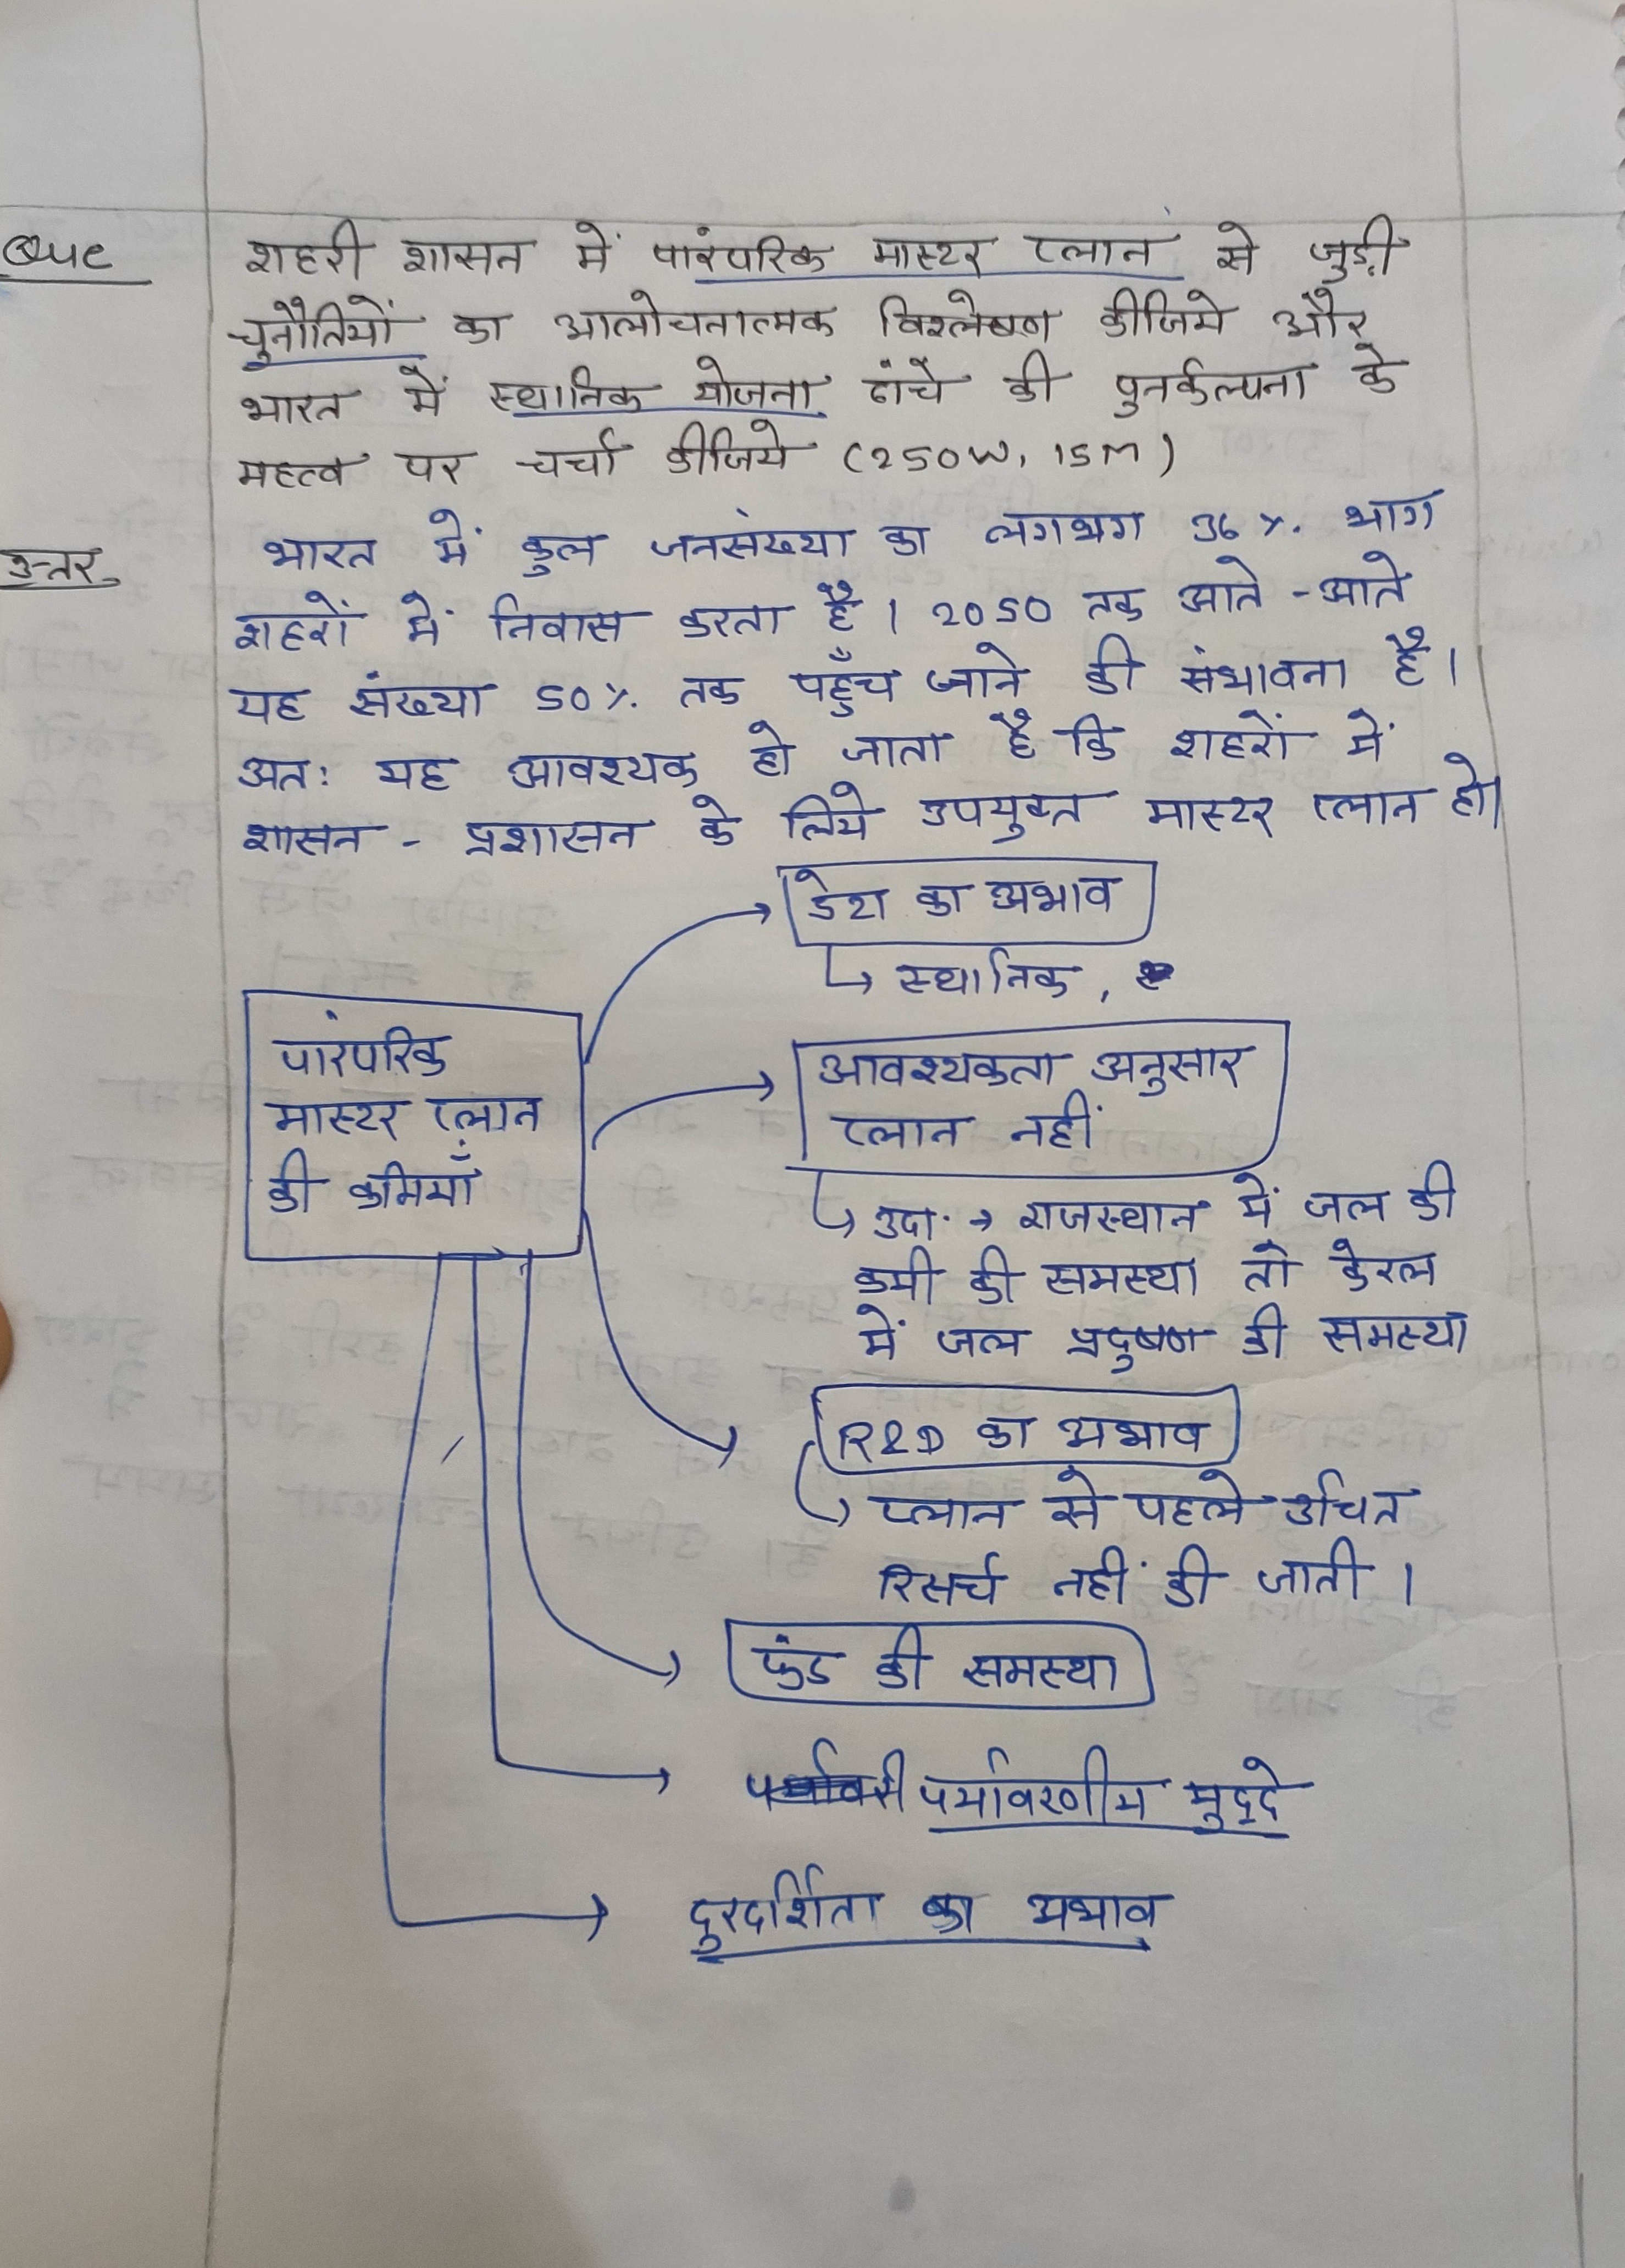 Que शहरी शासन में पारंपरिक मास्टर प्लान से जुड़ी
चुनौतियों का आलोचनात्मक विश्लेषण कीजिये और
भारत में स्थानिक योजना ढांचे की पुनर्कल्पना के
महत्व पर चर्चा कीजिये (250W, 15M)
उत्तर भारत में कुल जनसंख्या का लगभग 36%. भाग
शहरों में निवास करता है। 2050 तक आते-आते
यह संख्या 50%. तक पहुँच जाने की संभावना है।
अतः यह आवश्यक हो जाता है कि शहरों में
शासन - प्रशासन के लिये उपयुक्त मास्टर प्लान हो।
पारंपरिक
मास्टर प्लान
की कमियाँ
डेटा का अभाव
↳ स्थानिक,
आवश्यकता अनुसार
प्लान नहीं
↳ उदा. → राजस्थान में जल की
कमी की समस्या तो केरल
में जल प्रदुषण की समस्या
R&D का अभाव
↳ प्लान से पहले उचित
रिसर्च नहीं की जाती।
फंड की समस्या
पर्यावरणीय मुद्दे
दुरदर्शिता का अभाव